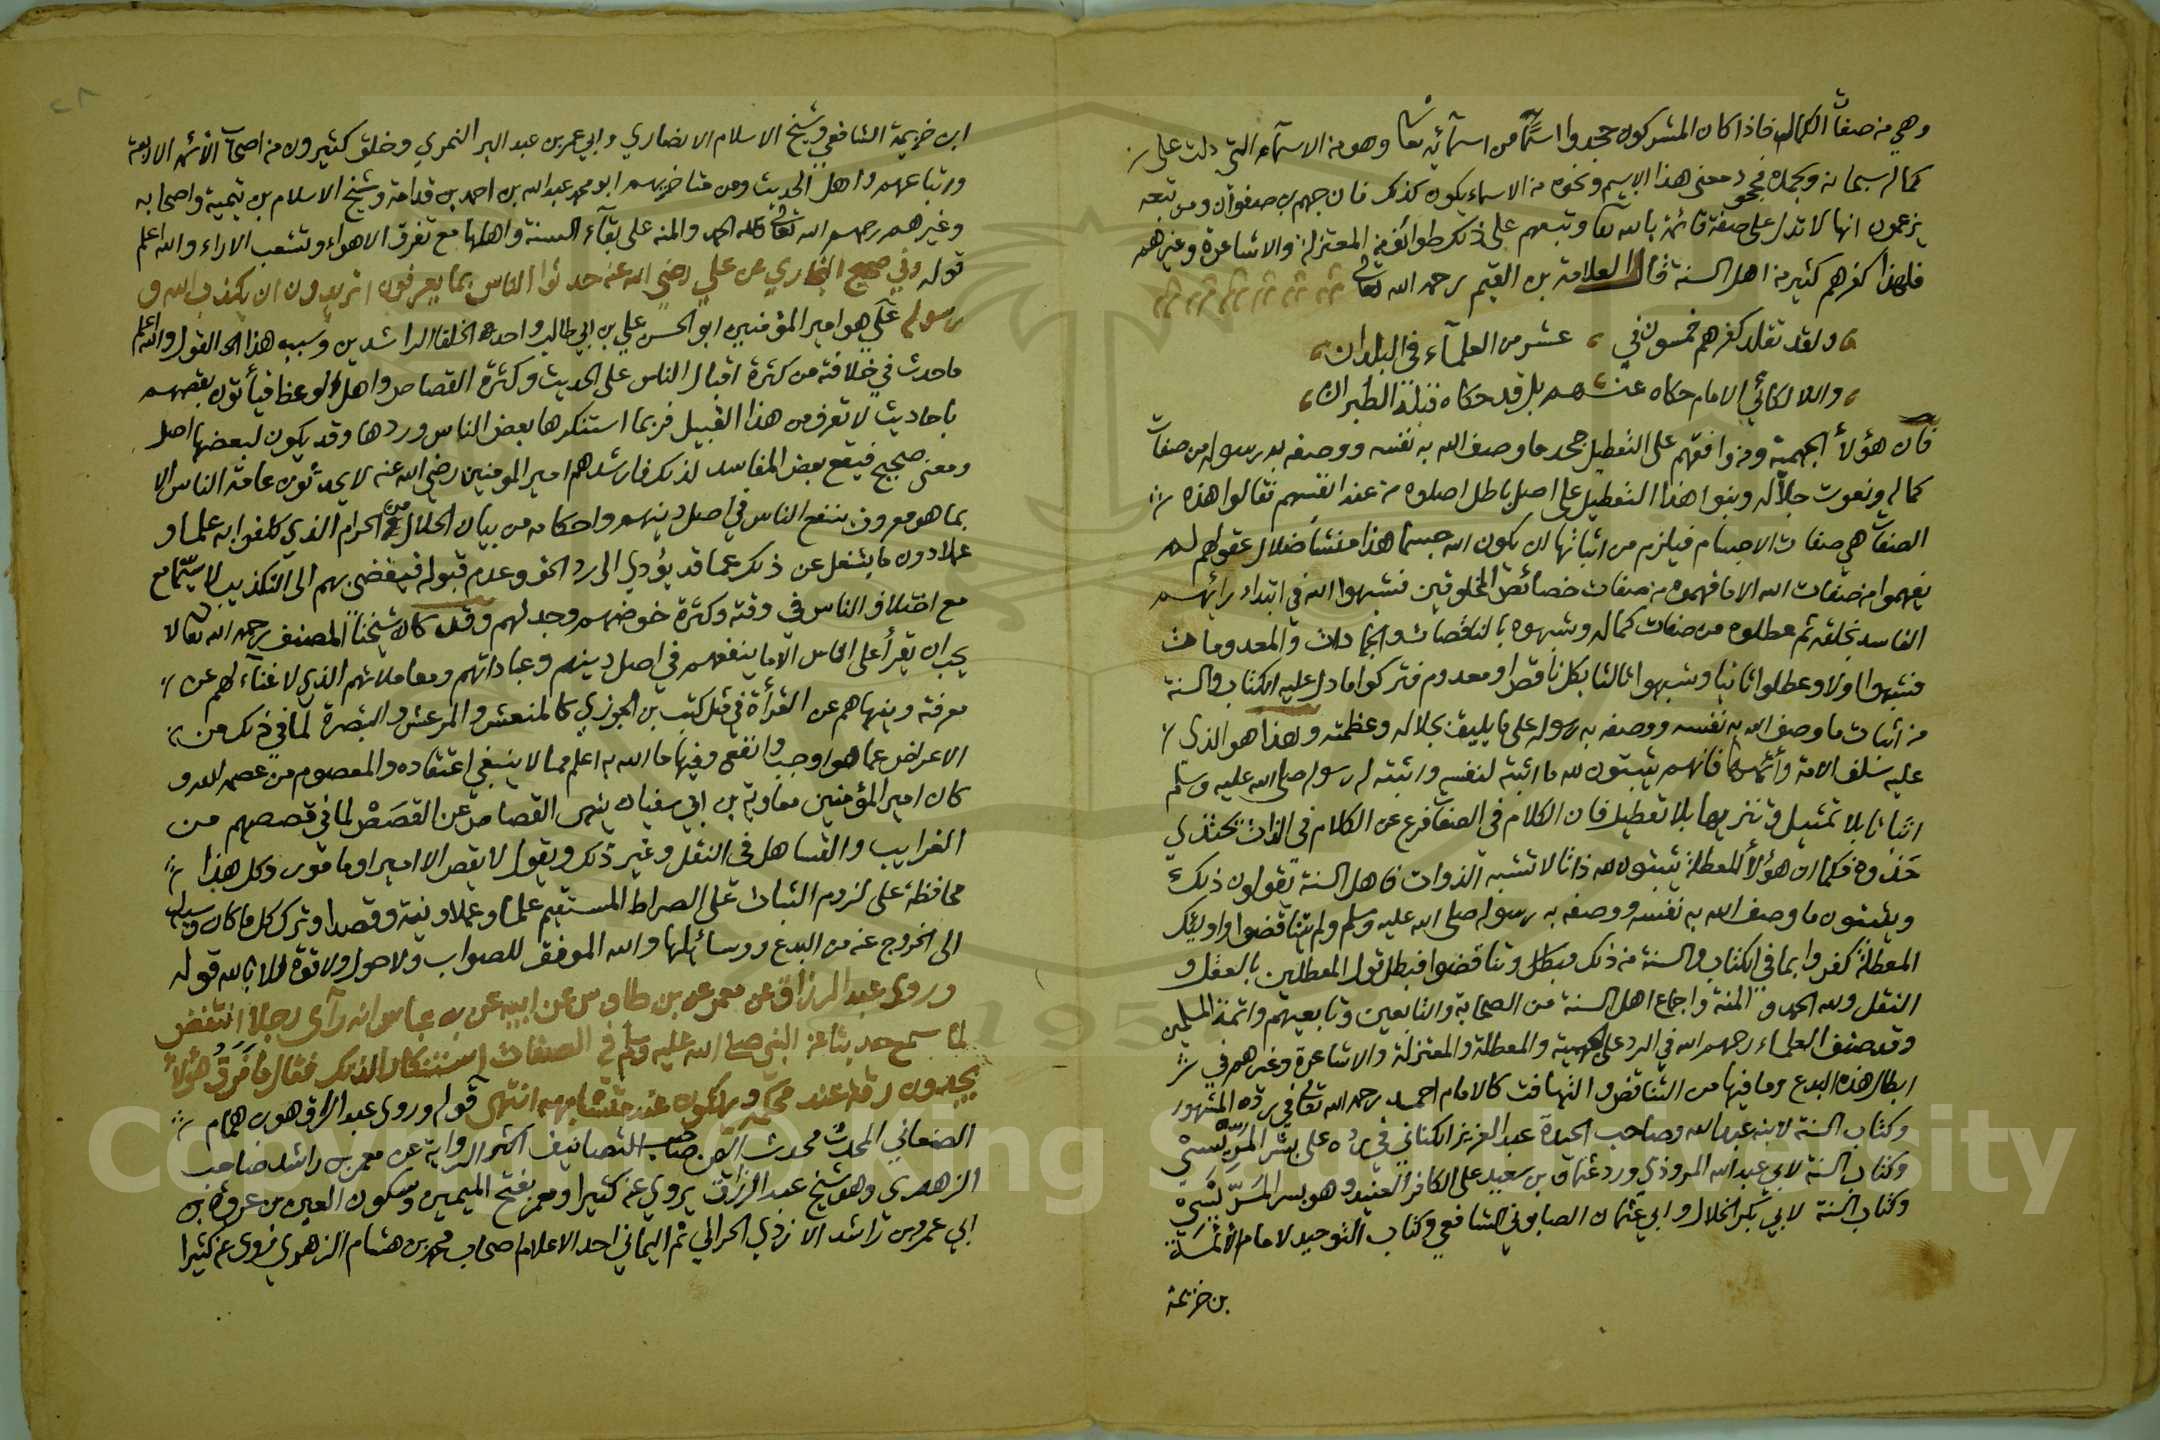 وهي من صفات الكمال فاذا كان المشركون جحدوا اسمًا من اسمآئه تعا وهو من الاسمآء التي دلت على
كماله سبحانه وبحمده فجحود معنى هذا الاسم ونحوه من الاسماء يكون كذلك فان جهم بن صفوان ومن تبعه
يزعمون انها لا تدل على صفة قائمة بالله تعا وتبعهم على ذلك طوائف من المعتزلة والاشاعرة وغيرهم
فلهذا كفرهم كثير من اهل السنة قال العلامة بن القيم رحمه الله تعالى
ولقد تقلد كفرهم خمسون في عشر من العلمآء في البلدان
واللالكائي الامام حكاه عنهم بل قد حكاه قبله الطبراني
فان هؤلاء الجهمية ومن وافقهم على التعطيل جحدوا ما وصف الله به نفسه ووصفه به رسوله من صفات
كماله ونعوت جلاله وبنوا هذا التعطيل على اصل باطل اصلوه من عند انفسهم فقالوا هذه
الصفات هي صفات الاجسام فيلزم من اثباتها ان يكون الله جسما هذا منشأ ضلال عقولهم لم
يفهموا من صفات الله الا ما فهموه من صفات خصائص المخلوقين فشبهوا الله في ابتداء رائهم
الفاسد بخلقه ثم عطلوه من صفات كماله وشبهوه بالناقصات والجمادات والمعدومات
فشبهوا اولا وعطلوا ثانيا وشبهوا ثالثا بكل ناقص او معدوم فتركوا ما دل عليه الكتاب والسنة
من اثبات ما وصف الله به نفسه ووصفه به رسوله على ما يليق بجلاله وعظمته وهذا هو الذي
عليه سلف الامة وأئمتها فانهم يثبتون لله ما اثبته لنفسه واثبته له رسوله صلى الله عليه وسلم
اثباتا بلا تمثيل وتنزيها بلا تعطيل فان الكلام في الصفات فرع عن الكلام في الذات يحتذي
حذوه فكما ان هؤلاء المعطلة يثبتون لله ذاتا لا تشبه الذوات فاهل السنة يقولون ذلك
ويثبتون ما وصف الله به نفسه ووصفه به رسوله صلى الله عليه وسلم ولم يتناقضوا واولئك
المعطلة كفروا بما في الكتاب والسنة من ذلك وتناقضوا فبطل قول المعطلين بالعقل و
النقل ولله الحمد والمنة واجماع اهل السنة من الصحابة والتابعين وتابعيهم وائمة المسلمين
وقد صنف العلماء رحمهم الله في الرد على الجهمية والمعطلة والمعتزلة والاشاعرة وغيرهم في
ابطال هذه البدع وما فيها من التناقض والتهافت كالامام احمد رحمه الله تعالى في رده المشهور
وكتاب السنة لابنه عبد الله وصاحب الحيدة عبد العزيز الكناني في رده على بشر المريسي
وكتاب السنة لابي عبد الله المروذي ورد عثمان بن سعيد على الكافر العنيد وهو بشر المريسي
وكتاب السنة لابي بكر الخلال وابي عثمان الصابوني الشافعي وكتاب التوحيد لامام الأئمة
بن خزيمة
٢٨
ابن خزيمة الشافعي وشيخ الاسلام الانصاري وابي عمر بن عبد البر النمري وخلق كثيرون من اصحاب الأئمة الاربعة
واتباعهم واهل الحديث ومن متاخريهم ابو محمد عبد الله بن احمد بن قدامة وشيخ الاسلام بن تيمية واصحابه
وغيرهم رحمهم الله تعالى فلله الحمد والمنه على بقآء السنة واهلها مع تفرق الاهواء وتشعب الاراء والله اعلم
قوله وفي صحيح البخاري عن علي رضي الله عنه حدثوا الناس بما يعرفون اتريدون ان يكذب الله و
رسوله علي هو امير المؤمنين ابو الحسن علي بن ابي طالب واحد الخلفا الراشدين وسبب هذا القول والله اعلم
ما حدث في خلافته من كثرة اقبال الناس على الحديث وكثرة القصاص واهل الوعظ فيأتون بقصصهم
باحاديث لا تعرف من هذا القبيل فربما استنكرها بعض الناس وردها وقد يكون لبعضها اصل
ومعنى صحيح فيقع بعض المفاسد لذلك فارشدهم امير المومنين رضي الله عنه لا يحدثون عامة الناس الا
بما هو معروف ينفع الناس في اصل دينهم واحكامه من بيان الحلال من الحرام الذي كلفوا به علما و
عملا دون ما يشغل عن ذلك مما قد يؤدي الى رد الحق وعدم قبوله فيفضي بهم الى التكذيب لا سيّما مع
مع اختلاف الناس في وقته وكثرة خوضهم وجدلهم وقد كان شيخنا المصنف رحمه الله تعا لا
يحب ان يقرأ على الناس الا ما ينفعهم في اصل دينهم وعباداتهم ومعاملاتهم الذي لا غنآء لهم عن
معرفته وينهاهم عن القرأة في مثل كتب بن الجوزي كالمنعش والمرعش والتبصرة لما في ذلك من
الاعراض عما هو اوجب وانفع وفيها ما الله به اعلم مما لا ينبغي اعتقاده والمعصوم من عصمه الله و
كان امير المؤمنين معاوية بن ابي سفيان ينهى القصاص عن القَصَصْ لما في قصصهم من
الغرايب والتساهل في النقل وغير ذلك ويقول لا يقص الا امير او مامور وكل هذا
محافظة على لزوم الثبات على الصراط المستقيم علما وعملا ونية وقصدا وترك كل ما كان وسيلة
الى الخروج عنه من البدع ووسائلها والله الموفق للصواب ولا حول ولا قوة الا بالله قوله
وروى عبد الرزاق عن معمر عن بن طاوس عن ابيه عن بن عباس انه رآى رجلا انتفض
لما سمع حديثا عن النبي صلى الله عليه وسلم في الصفات استنكارا لذلك فقال ما فَرَقُ هؤلاء
يجدون رقة عند محكمه ويهلكون عند متشابهه انتهى قوله وروى عبد الرزاق هو بن همام
الصنعاني المحدث محدث اليمن صاحب التصانيف اكثر الرواية عن معمر بن راشد صاحب
الزهري وهو شيخ عبد الرزاق يروي عنه كثيرا ومعمر بفتح الميمين وسكون العين بن عروة بن
ابي عمرو بن راشد الازدي الحراني ثم اليماني احد الاعلام اصحاب محمد بن هشام الزهري يروي عنه كثيرا